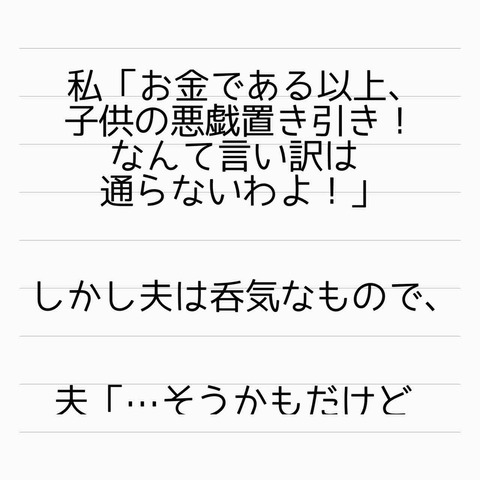 私「お金である以上、
子供の悪戯置き引き！
なんて言い訳は
通らないわよ！」
しかし夫は呑気なもので、
夫「…そうかもだけど